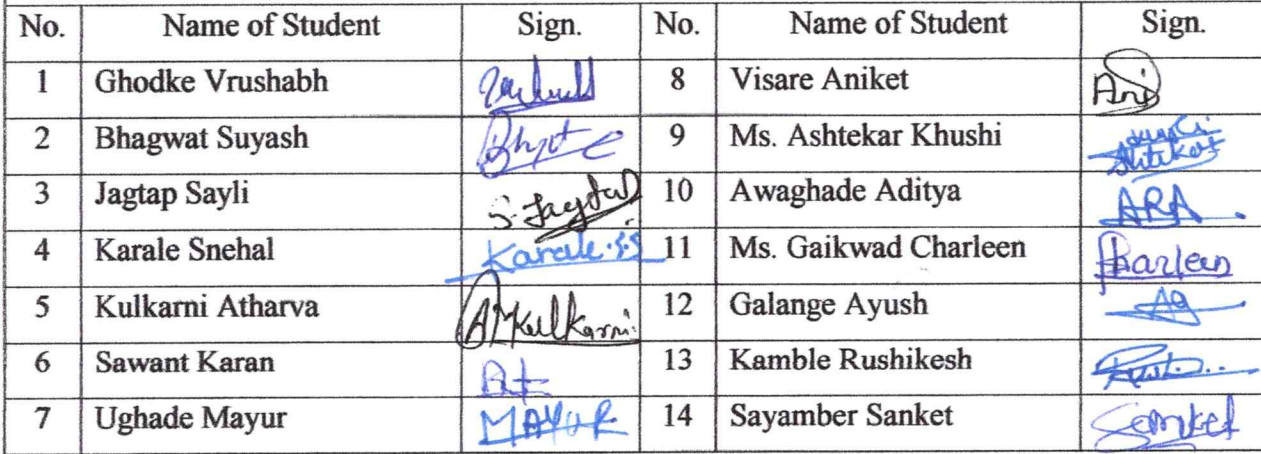 No. Name of Student Sign. No. Name of Student Sign.
1 Ghodke Vrushabh 8 Visare Aniket Ani
2 Bhagwat Suyash 9 Ms. Ashtekar Khushi Ashtekar
3 Jagtap Sayli S. Jagtap 10 Awaghade Aditya ARA.
4 Karale Snehal Karale.S.S 11 Ms. Gaikwad Charleen Charleen
5 Kulkarni Atharva AMKulkarni. 12 Galange Ayush AG
6 Sawant Karan 13 Kamble Rushikesh
7 Ughade Mayur MAYUR 14 Sayamber Sanket Sanket